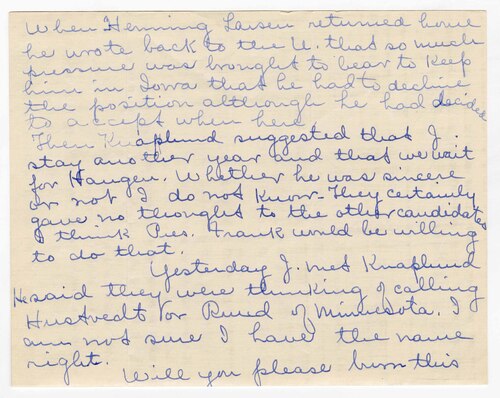 When Henning Larsen returned home
he wrote back to the U. that so much
pressure was brought to bear to keep
him in Iowa that he had to decline
the position although he had decided
to accept when here.
Then Knaplund suggested that I
stay another year and that we wait
for Haugen. Whether he was sincere
or not I do not know - They certainly
gave no thought to the other candidates
I think Pres. Frank would be willing
to do that.
Yesterday I met Knaplund
He said they were thinking of calling
Hustvedt or Ruud of Minnesota. I
am not sure I have the name
right.
Will you please burn this